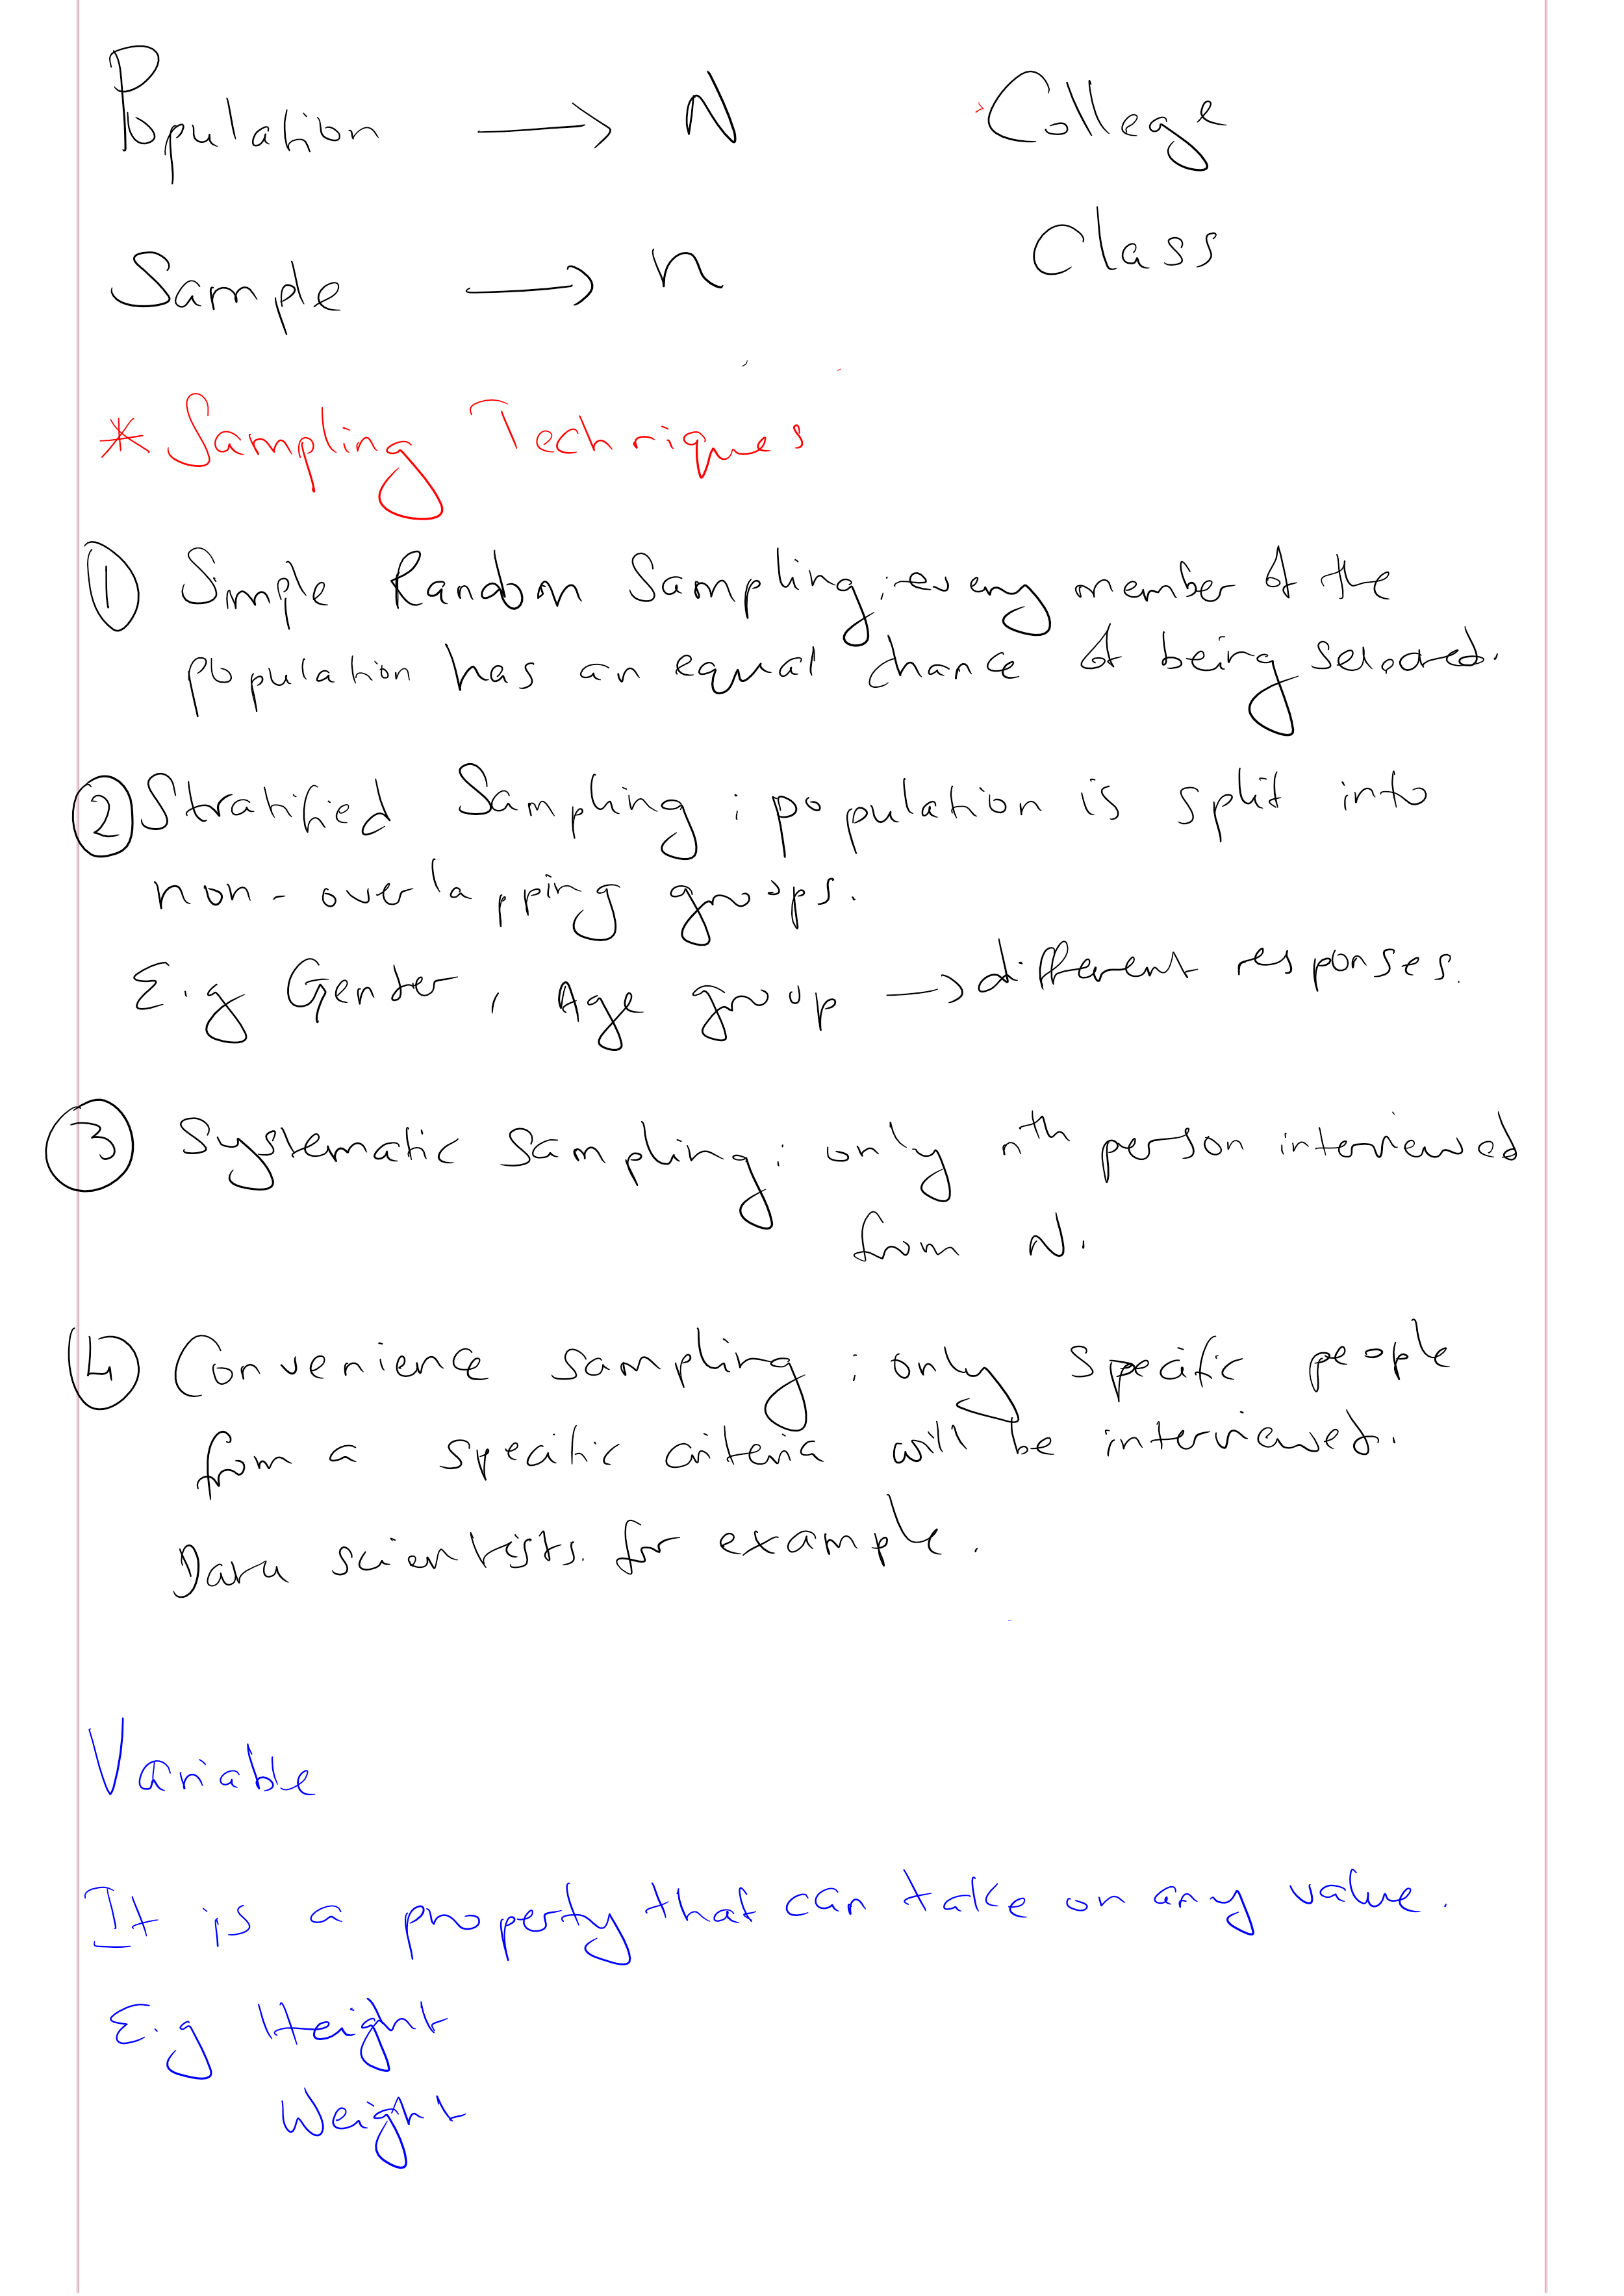 Population → N College
Class
Sample → n
* Sampling Techniques
① Simple Random Sampling : every member of the
population has an equal chance of being selected.
② Stratified Sampling : population is split into
non-overlapping groups.
E.g Gender, Age group → different responses.
③ Systematic Sampling : only nth person interviewed
from N.
④ Convenience sampling : only specific people
from a specific criteria will be interviewed.
Data scientists. for example.
Variable
It is a property that can take on any value.
E.g Height
Weight